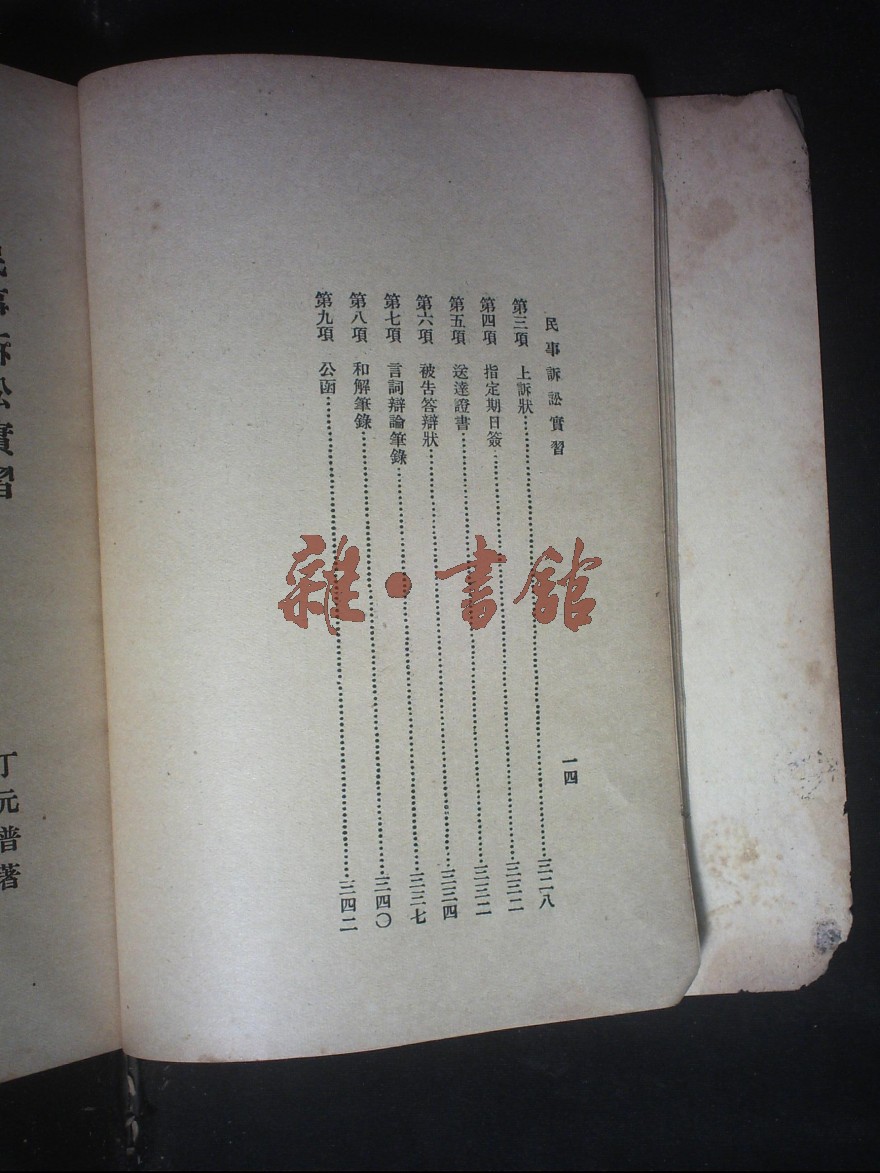 民事訴訟實習
一四
第三項 上訴狀……三二八
第四項 指定期日簽……三三二
第五項 送達證書……三三二
第六項 被告答辯狀……三三四
第七項 言詞辯論筆錄……三三七
第八項 和解筆錄……三四〇
第九項 公函……三四二
民事訴訟實習
丁元普著
雜·書館